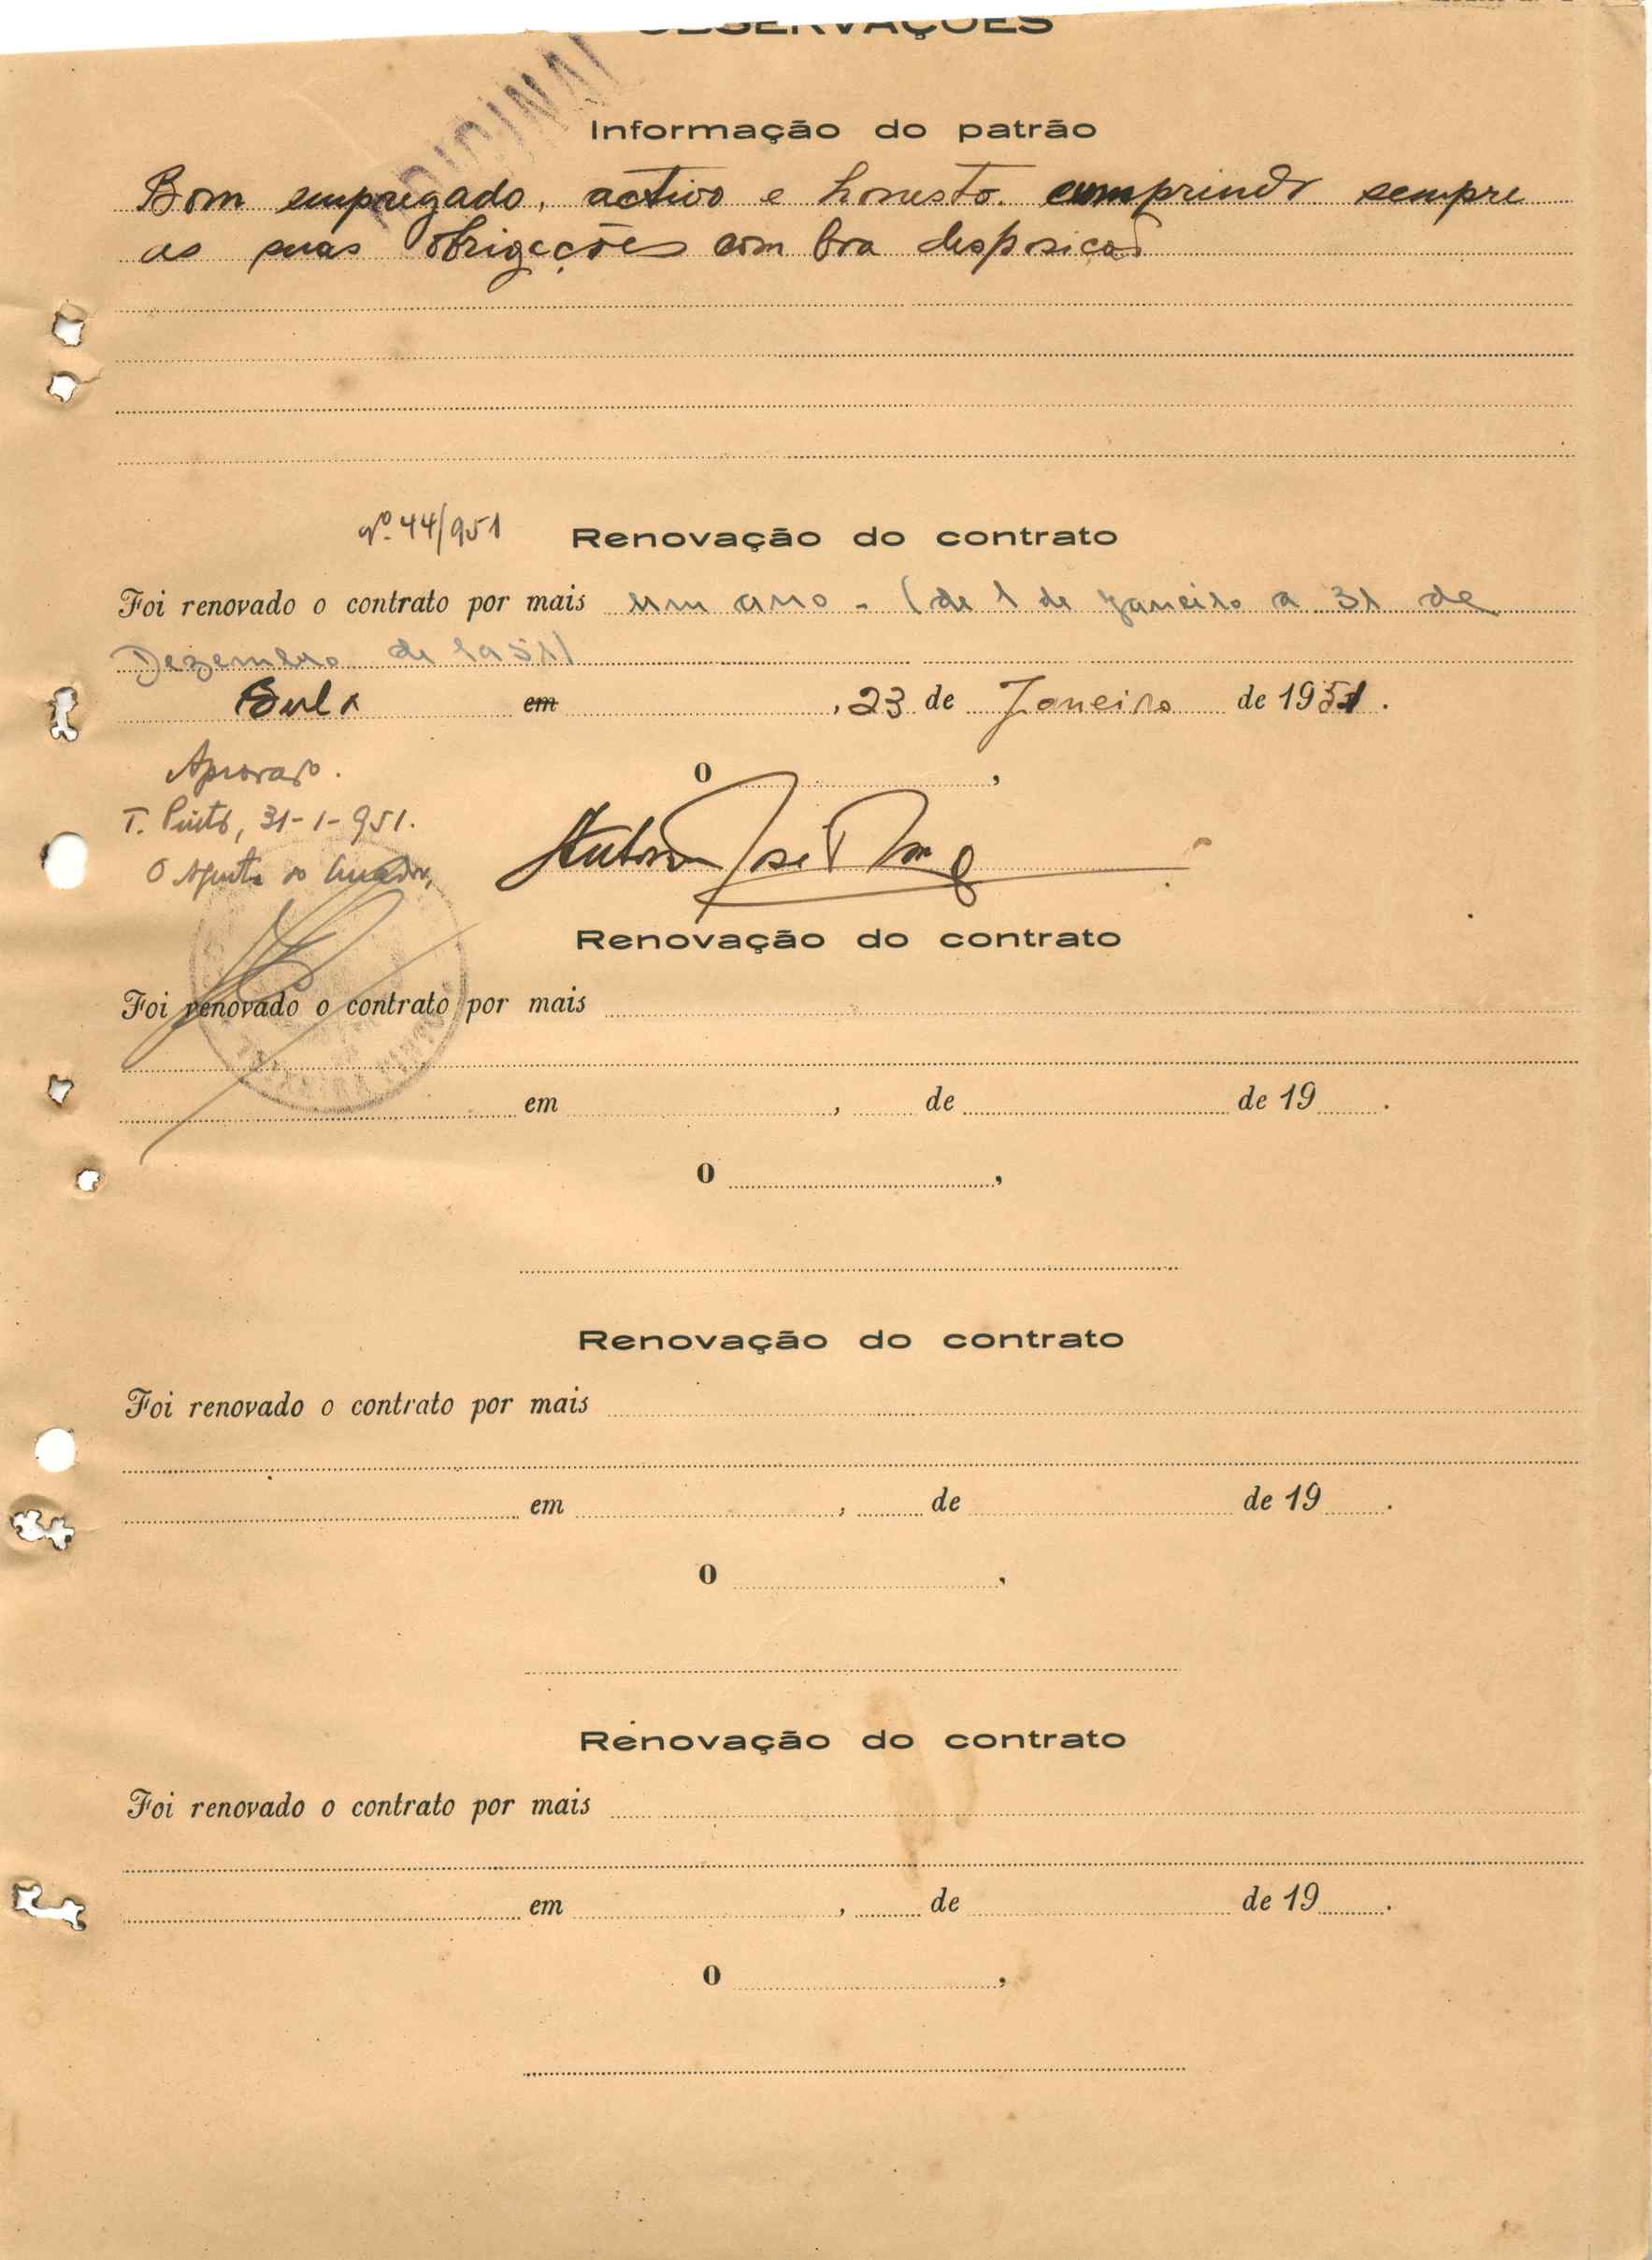 OBSERVAÇÕES
ORIGINAL
Informação do patrão
Bom empregado, activo e honesto. comprindo sempre
as suas obrigações com boa disposicão
nº. 44/951 Renovação do contrato
Foi renovado o contrato por mais um ano - (de 1 de Janeiro a 31 de
Dezembro de 1951)
em , 23 de Janeiro de 1951.
Aprovado.
O ,
T. Pinto, 31-1-951.
O Agente do Curador,
António José
Renovação do contrato
Foi renovado o contrato por mais
TEIXEIRA PINTO
em , de de 19 .
O ,
Renovação do contrato
Foi renovado o contrato por mais
em , de de 19 .
O ,
Renovação do contrato
Foi renovado o contrato por mais
em , de de 19 .
O ,